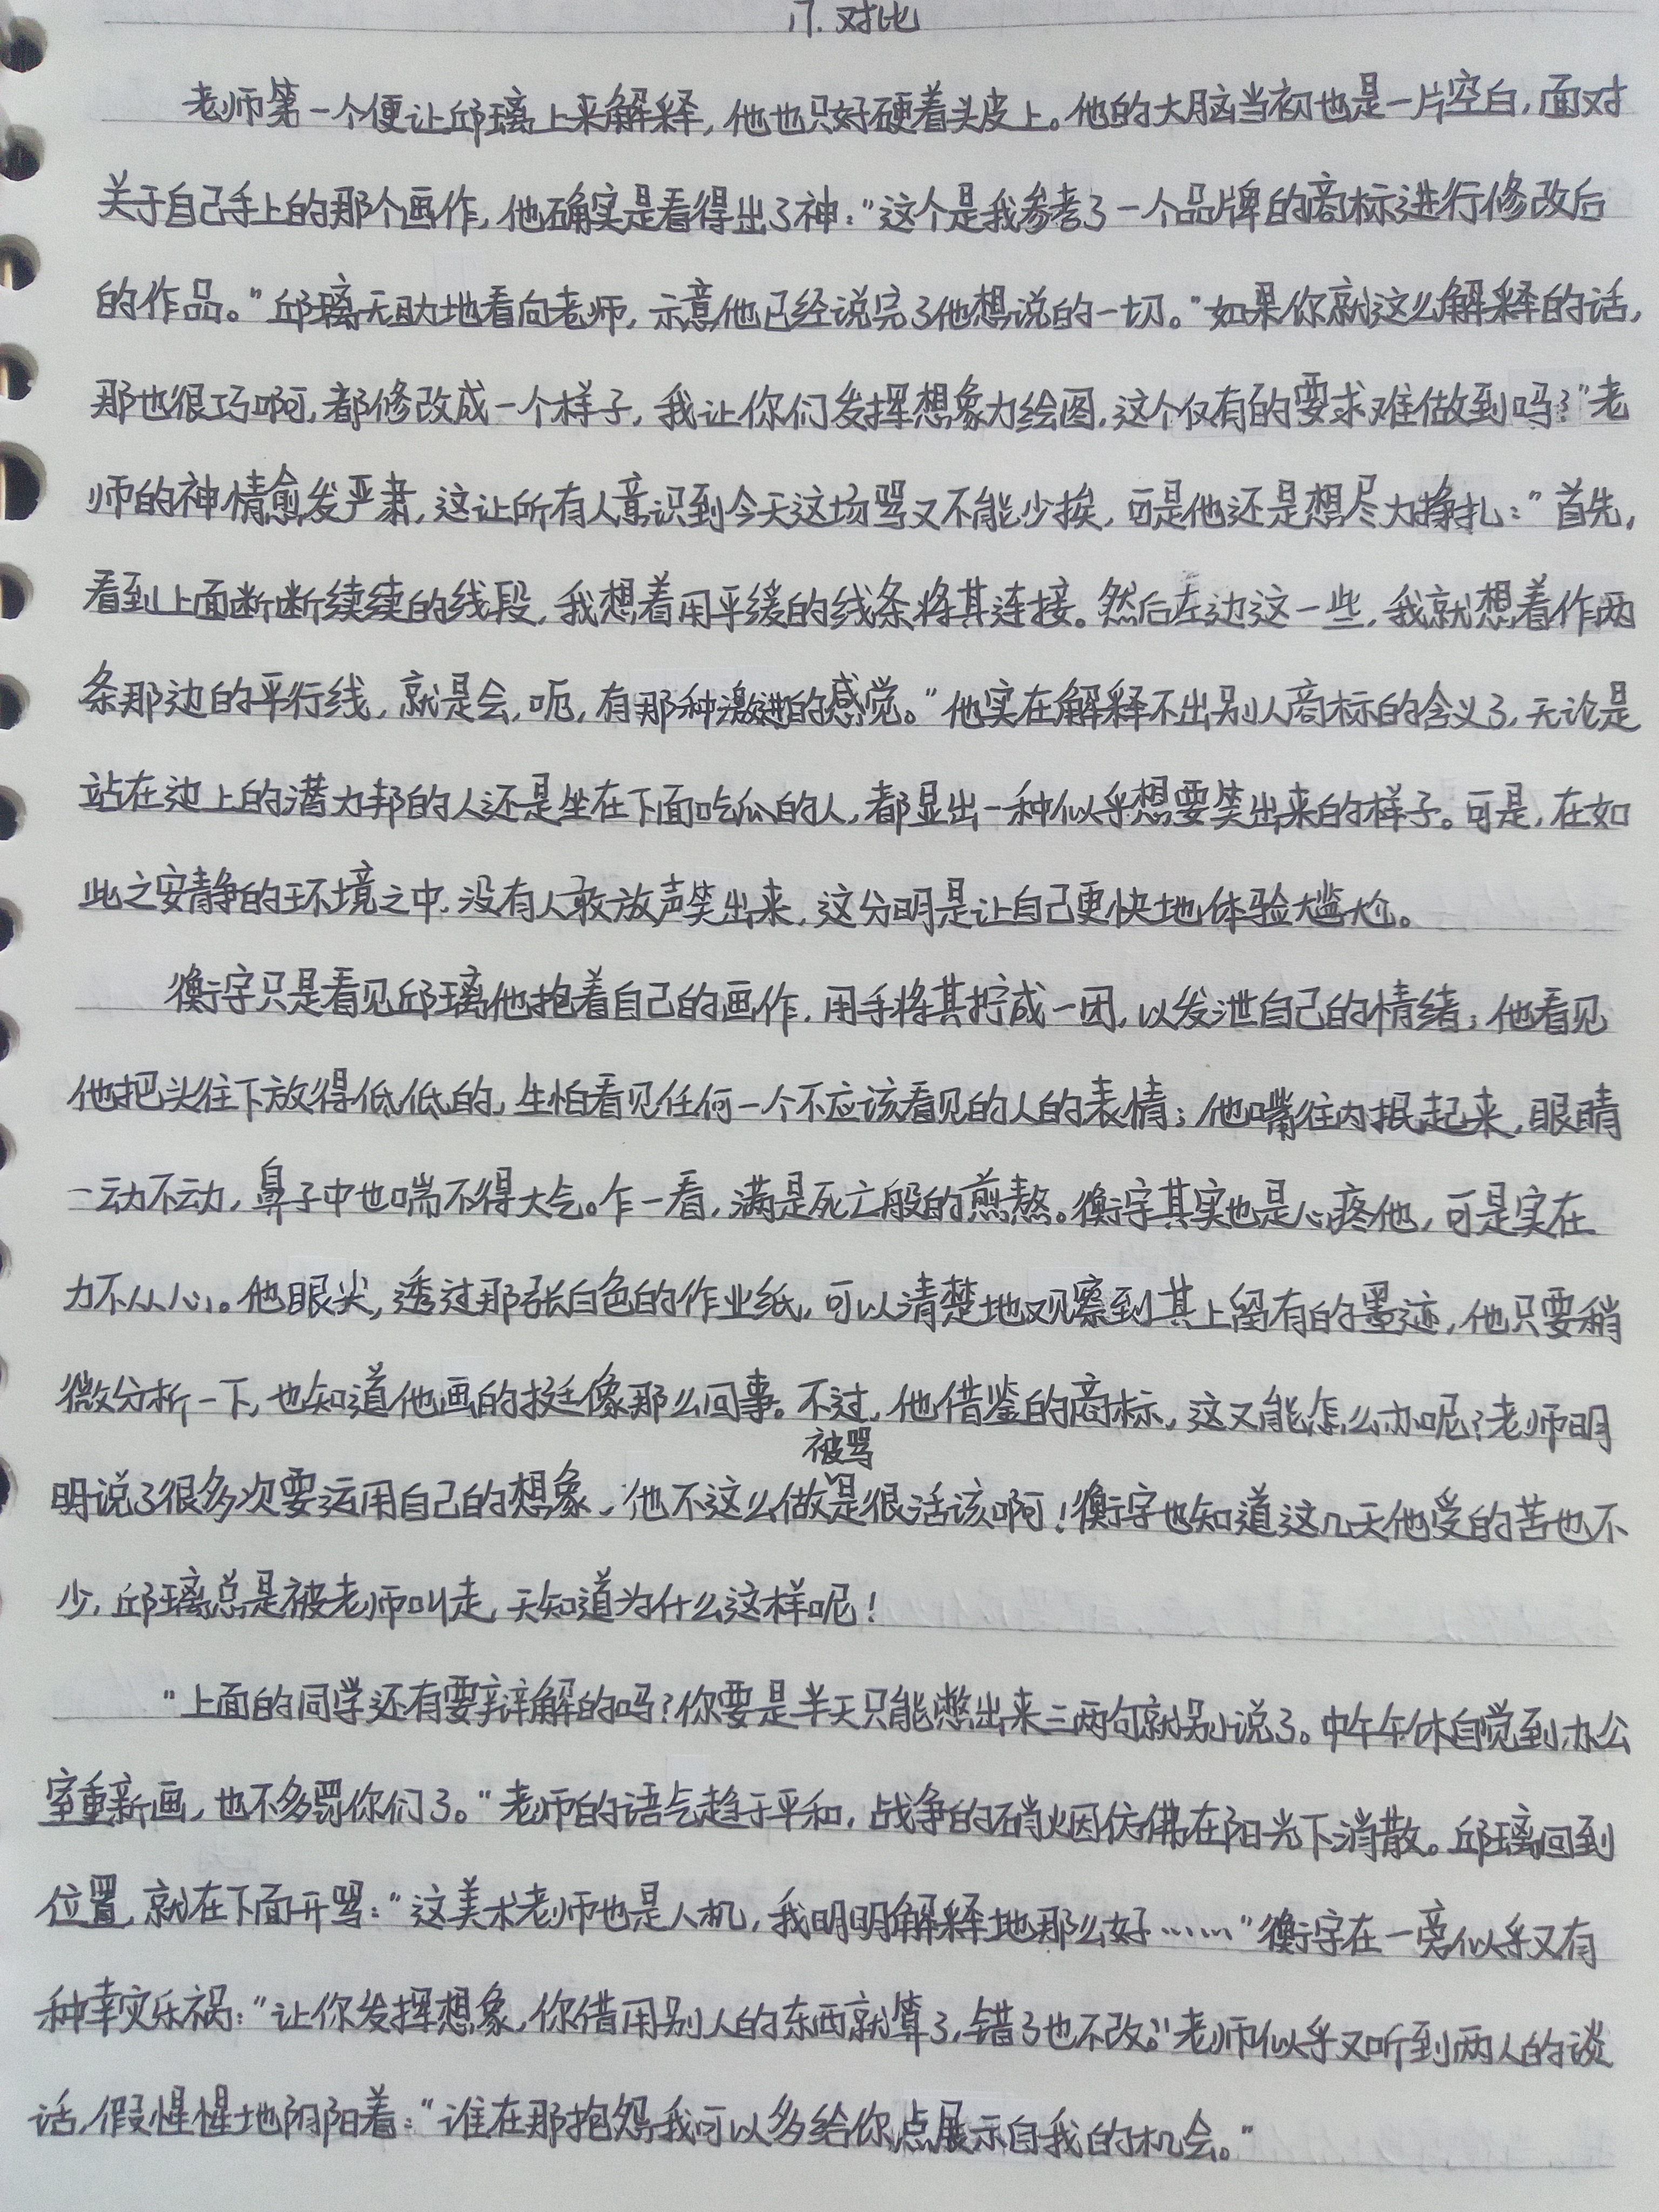 17. 对比
老师第一个便让邱璃上来解释，他也只好硬着头皮上。他的大脑当初也是一片空白，面对
关于自己手上的那个画作，他确实是看得出了神：“这个是我参考了一个品牌的商标进行修改后
的作品。”邱璃无助地看向老师，示意他已经说完了他想说的一切。“如果你就这么解释的话，
那也很巧啊，都修改成一个样子，我让你们发挥想象力绘图，这个仅有的要求难做到吗？”老
师的神情愈发严肃，这让所有人意识到今天这场骂又不能少挨，可是他还是想尽力挣扎：“首先，
看到上面断断续续的线段，我想着用平缓的线条将其连接。然后左边这一些，我就想着作两
条那边的平行线，就是会，呃，有那种激进的感觉。”他实在解释不出别人商标的含义了，无论是
站在边上的潜力邦的人还是坐在下面吃瓜的人，都显出一种似乎想要笑出来的样子。可是，在如
此之安静的环境之中，没有人敢放声笑出来，这分明是让自己更快地体验尴尬。
衡宇只是看见邱璃他抱着自己的画作，用手将其拧成一团，以发泄自己的情绪；他看见
他把头往下放得低低的，生怕看见任何一个不应该看见的人的表情；他嘴往内抿起来，眼睛
一动不动，鼻子中也喘不得大气。乍一看，满是死亡般的煎熬。衡宇其实也是心疼他，可是实在
力不从心。他眼尖，透过那张白色的作业纸，可以清楚地观察到其上留有的墨迹，他只要稍
微分析一下，也知道他画的挺像那么回事。不过，他借鉴的商标，这又能怎么办呢？老师明
明说了很多次要运用自己的想象，他不这么做被骂是很活该啊！衡宇也知道这几天他受的苦也不
少，邱璃总是被老师叫走，天知道为什么这样呢！
“上面的同学还有要辩解的吗？你要是半天只能憋出来三两句就别说了。中午午休自觉到办公
室重新画，也不多罚你们了。”老师的语气趋于平和，战争的硝烟仿佛在阳光下消散。邱璃回到
位置，就在下面开骂：“这美术老师也是人机，我明明解释地那么好……”衡宇在一旁似乎又有
种幸灾乐祸：“让你发挥想象，你借用别人的东西就算了，错了也不改。”老师似乎又听到两人的谈
话，假惺惺地阴阳着：“谁在那抱怨，我可以多给你点展示自我的机会。”